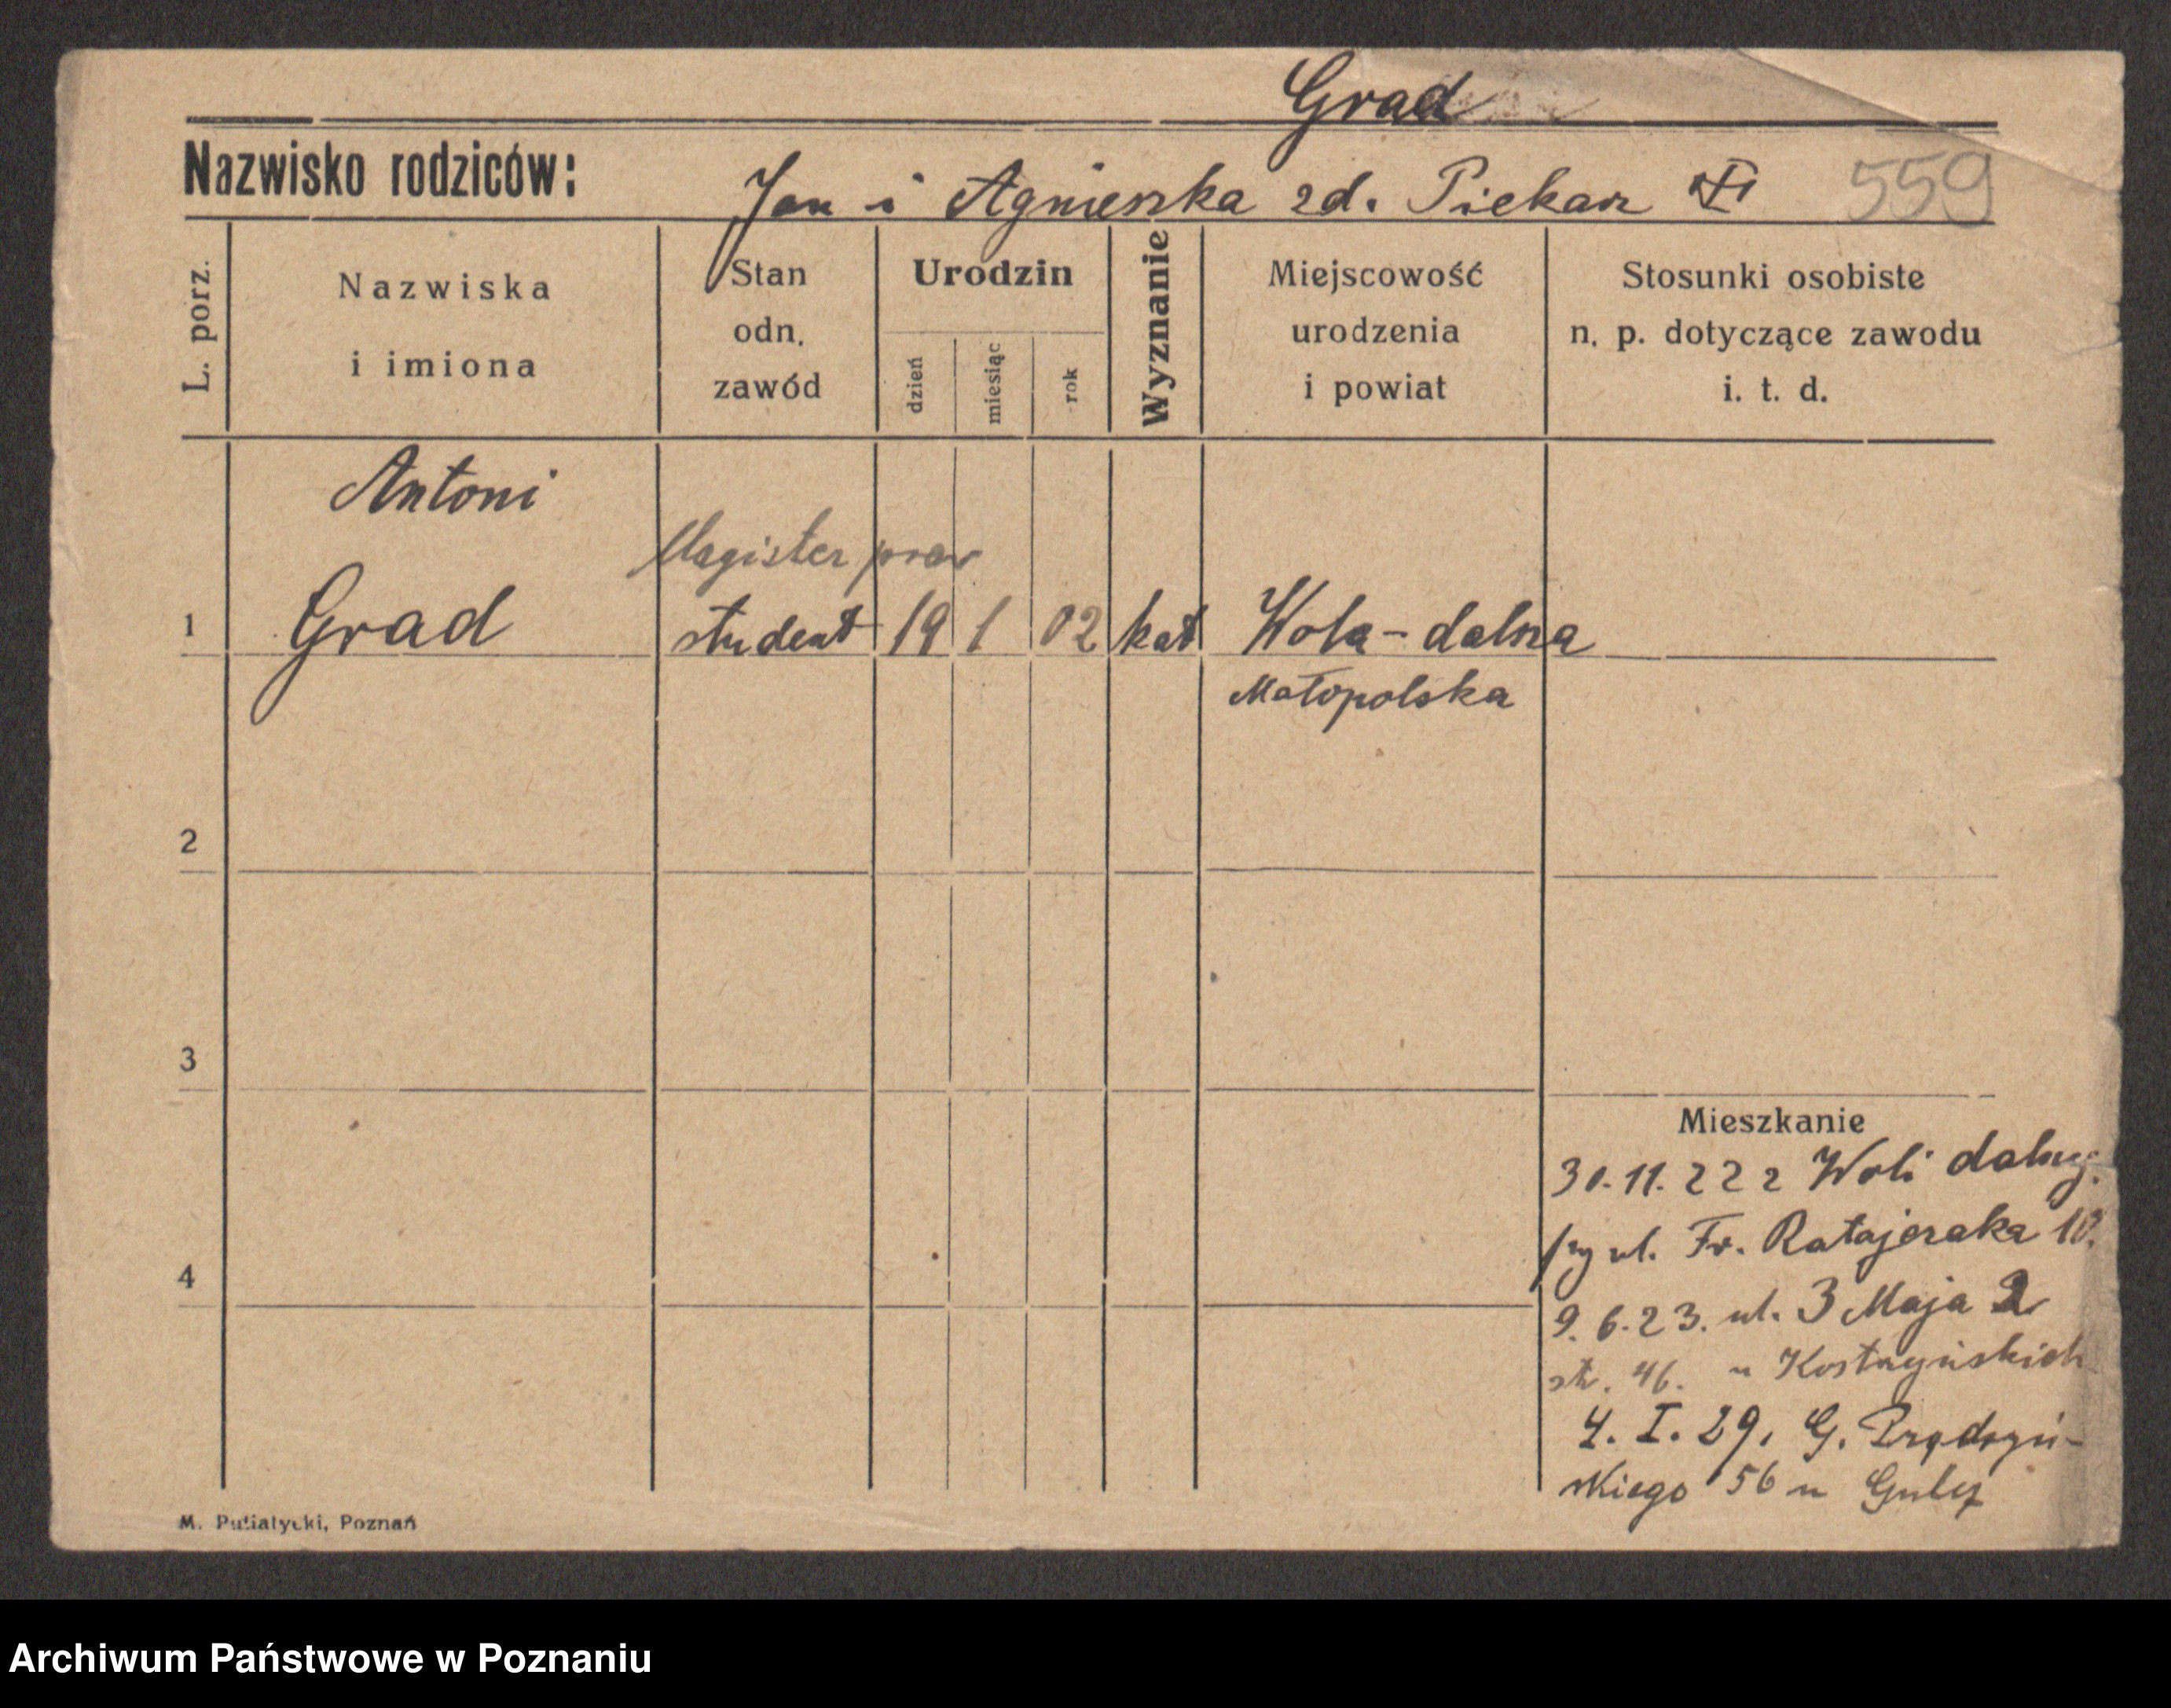 Grad
Nazwisko rodziców:
Jan i Agnieszka zd. Piekar
559
L. porz.
Nazwiska
i imiona
Stan
odn.
zawód
Urodzin
dzień
miesiąc
rok
Wyznanie
Miejscowość
urodzenia
i powiat
Stosunki osobiste
n. p. dotyczące zawodu
i. t. d.
Antoni
Magister praw
1 Grad student 19 1 02 kat Wola-dalsza
Małopolska
2
3
Mieszkanie
30.11.22 z Woli
4
ul. Fr. Ratajczaka 10.
9.6.23. ul. 3 Maja 2
str. 46. u Kostrzyńskich
4. I. 29. G. Prądzyń-
skiego 56 u
M. Putiatycki, Poznań
Archiwum Państwowe w Poznaniu